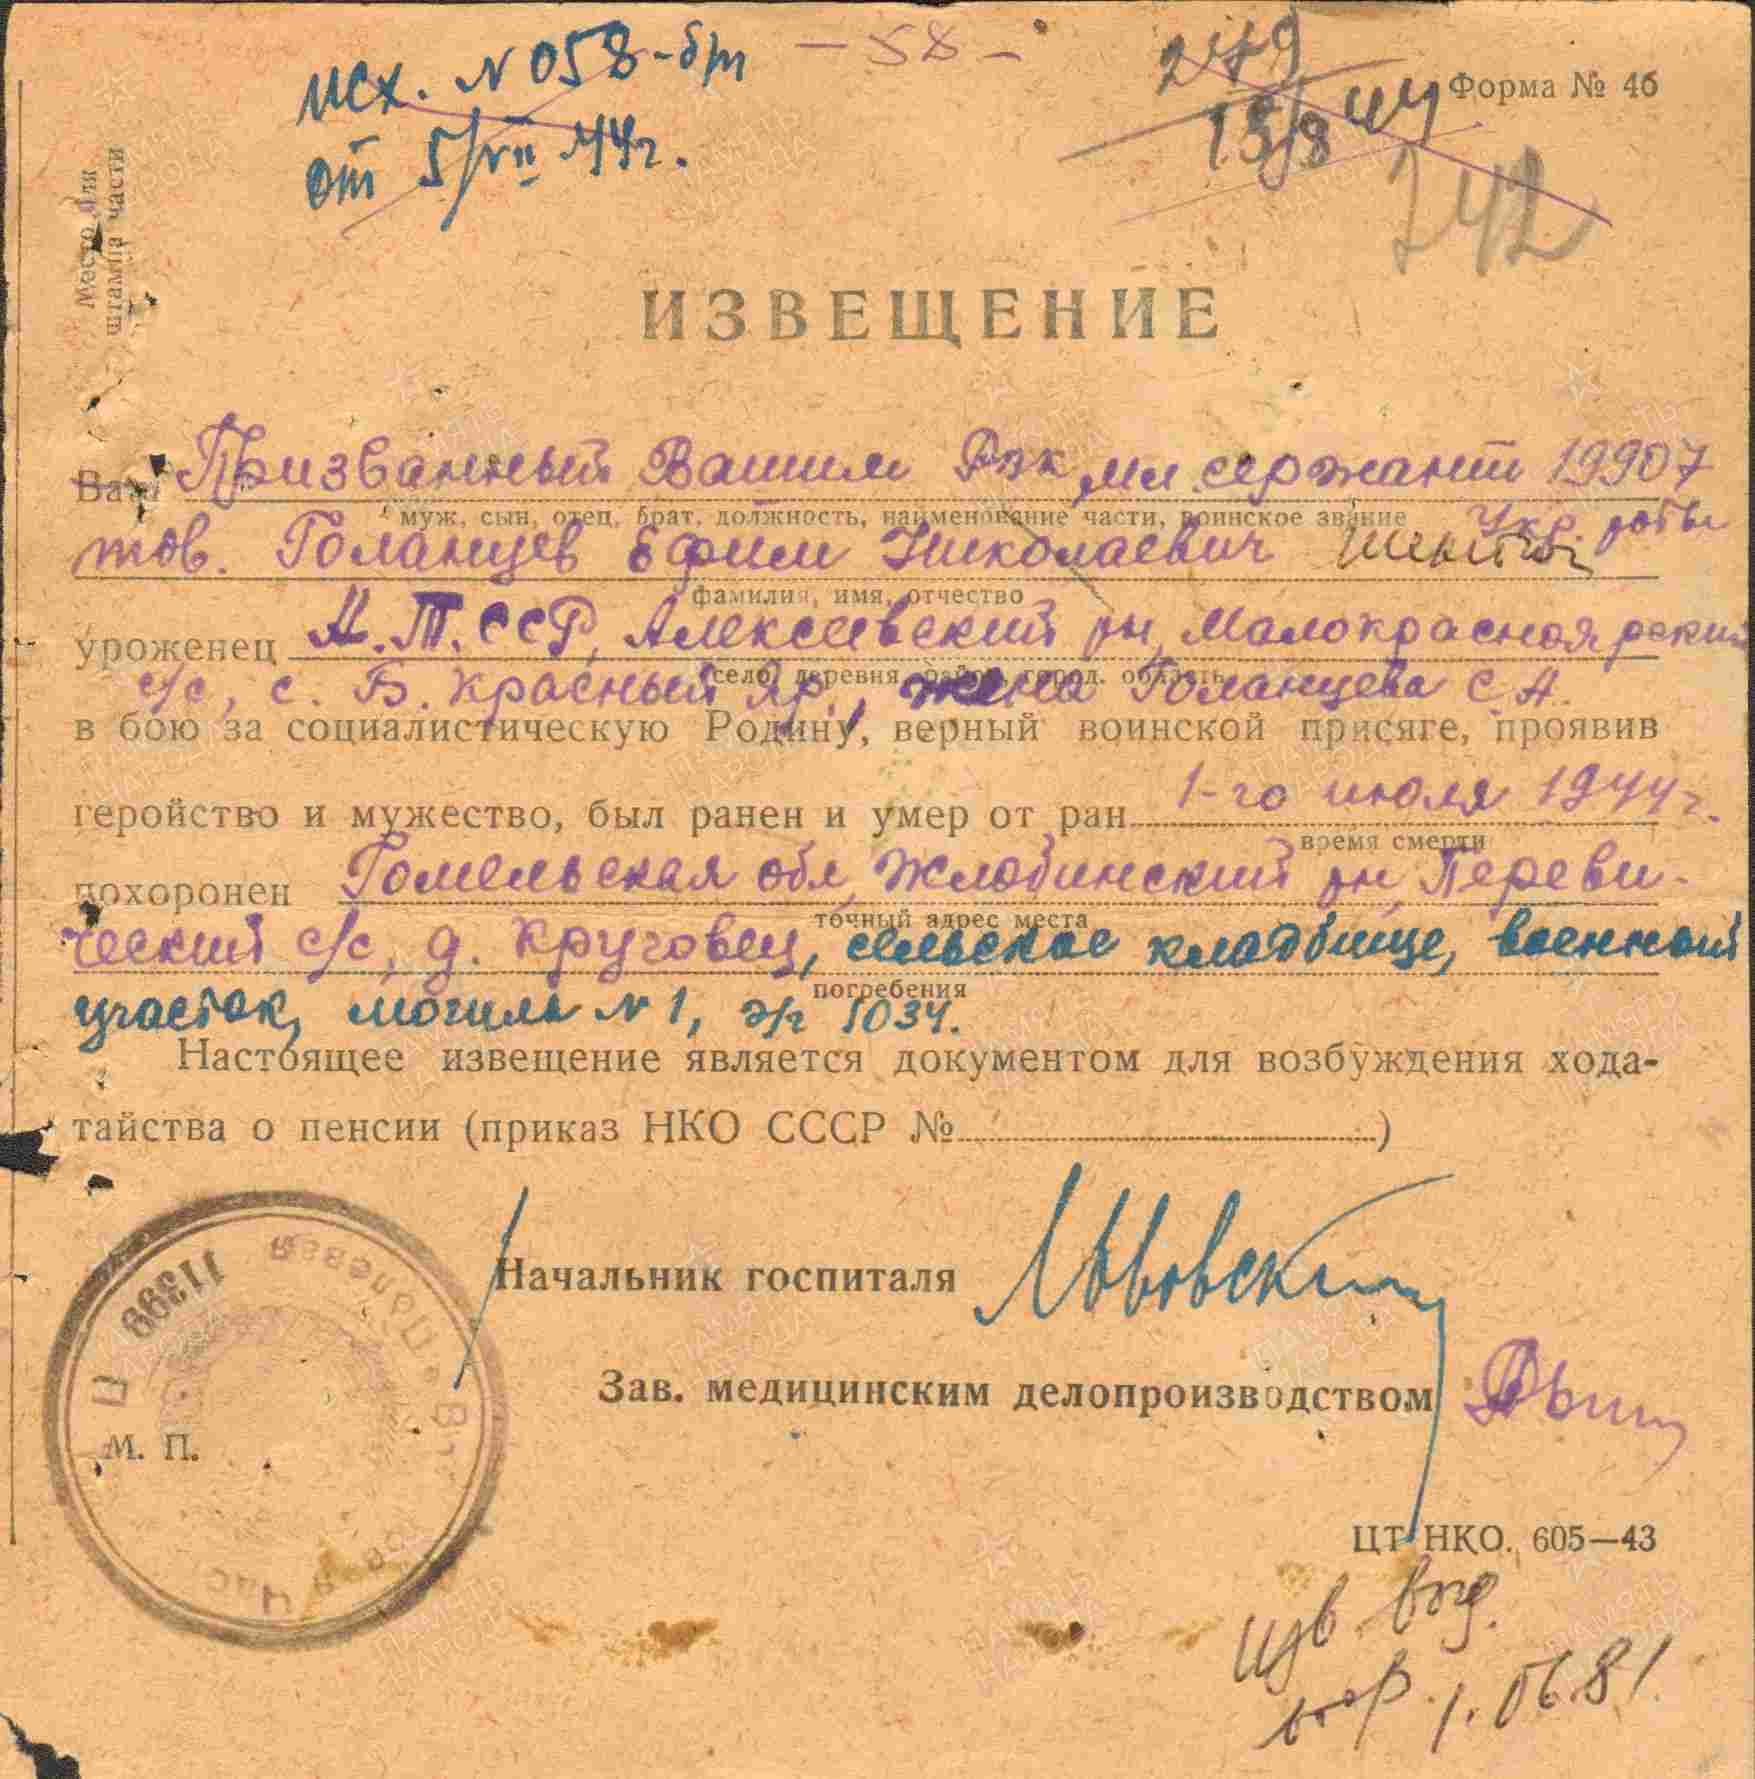 исх. N 058-бт
от 5/VII 44г.
- 58 -
279
13/8 44
242
Форма № 46
Место для
штампа части
ИЗВЕЩЕНИЕ
Ва Призванный Вашим Рвк, мл. сержант 19907
муж, сын, отец, брат, должность, наименование части, воинское звание
тов. Голанцев Ефим Николаевич
фамилия, имя, отчество
уроженец А.Т.ССР, Алексеевский рн, Малокрасноярский
село, деревня, район, город, область
с/с, с. Б. Красный Яр., жена Голанцева С.А.
в бою за социалистическую Родину, верный воинской присяге, проявив
геройство и мужество, был ранен и умер от ран 1-го июля 1944г.
время смерти
похоронен Гомельская обл, Жлобинский рн, Переви-
точный адрес места
ческий с/с, д. Круговец, сельское кладбище, военный
погребения
участок, могила N 1, э/г 1034.
Настоящее извещение является документом для возбуждения хода-
тайства о пенсии (приказ НКО СССР № )
Начальник госпиталя Львовский
Зав. медицинским делопроизводством
11399
Полевая
М. П.
ЦТ НКО. 605—43
изв
1.06.81
ПАМЯТЬ
НАРОДА